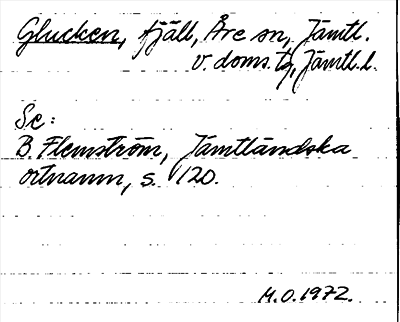 Glucken, fjäll, Åre sn, Jämtl.
v. doms.tg, Jämtl.l.
Se:
B. Flemström, Jämtländska
ortnamn, s. 120.
M.O.1972.